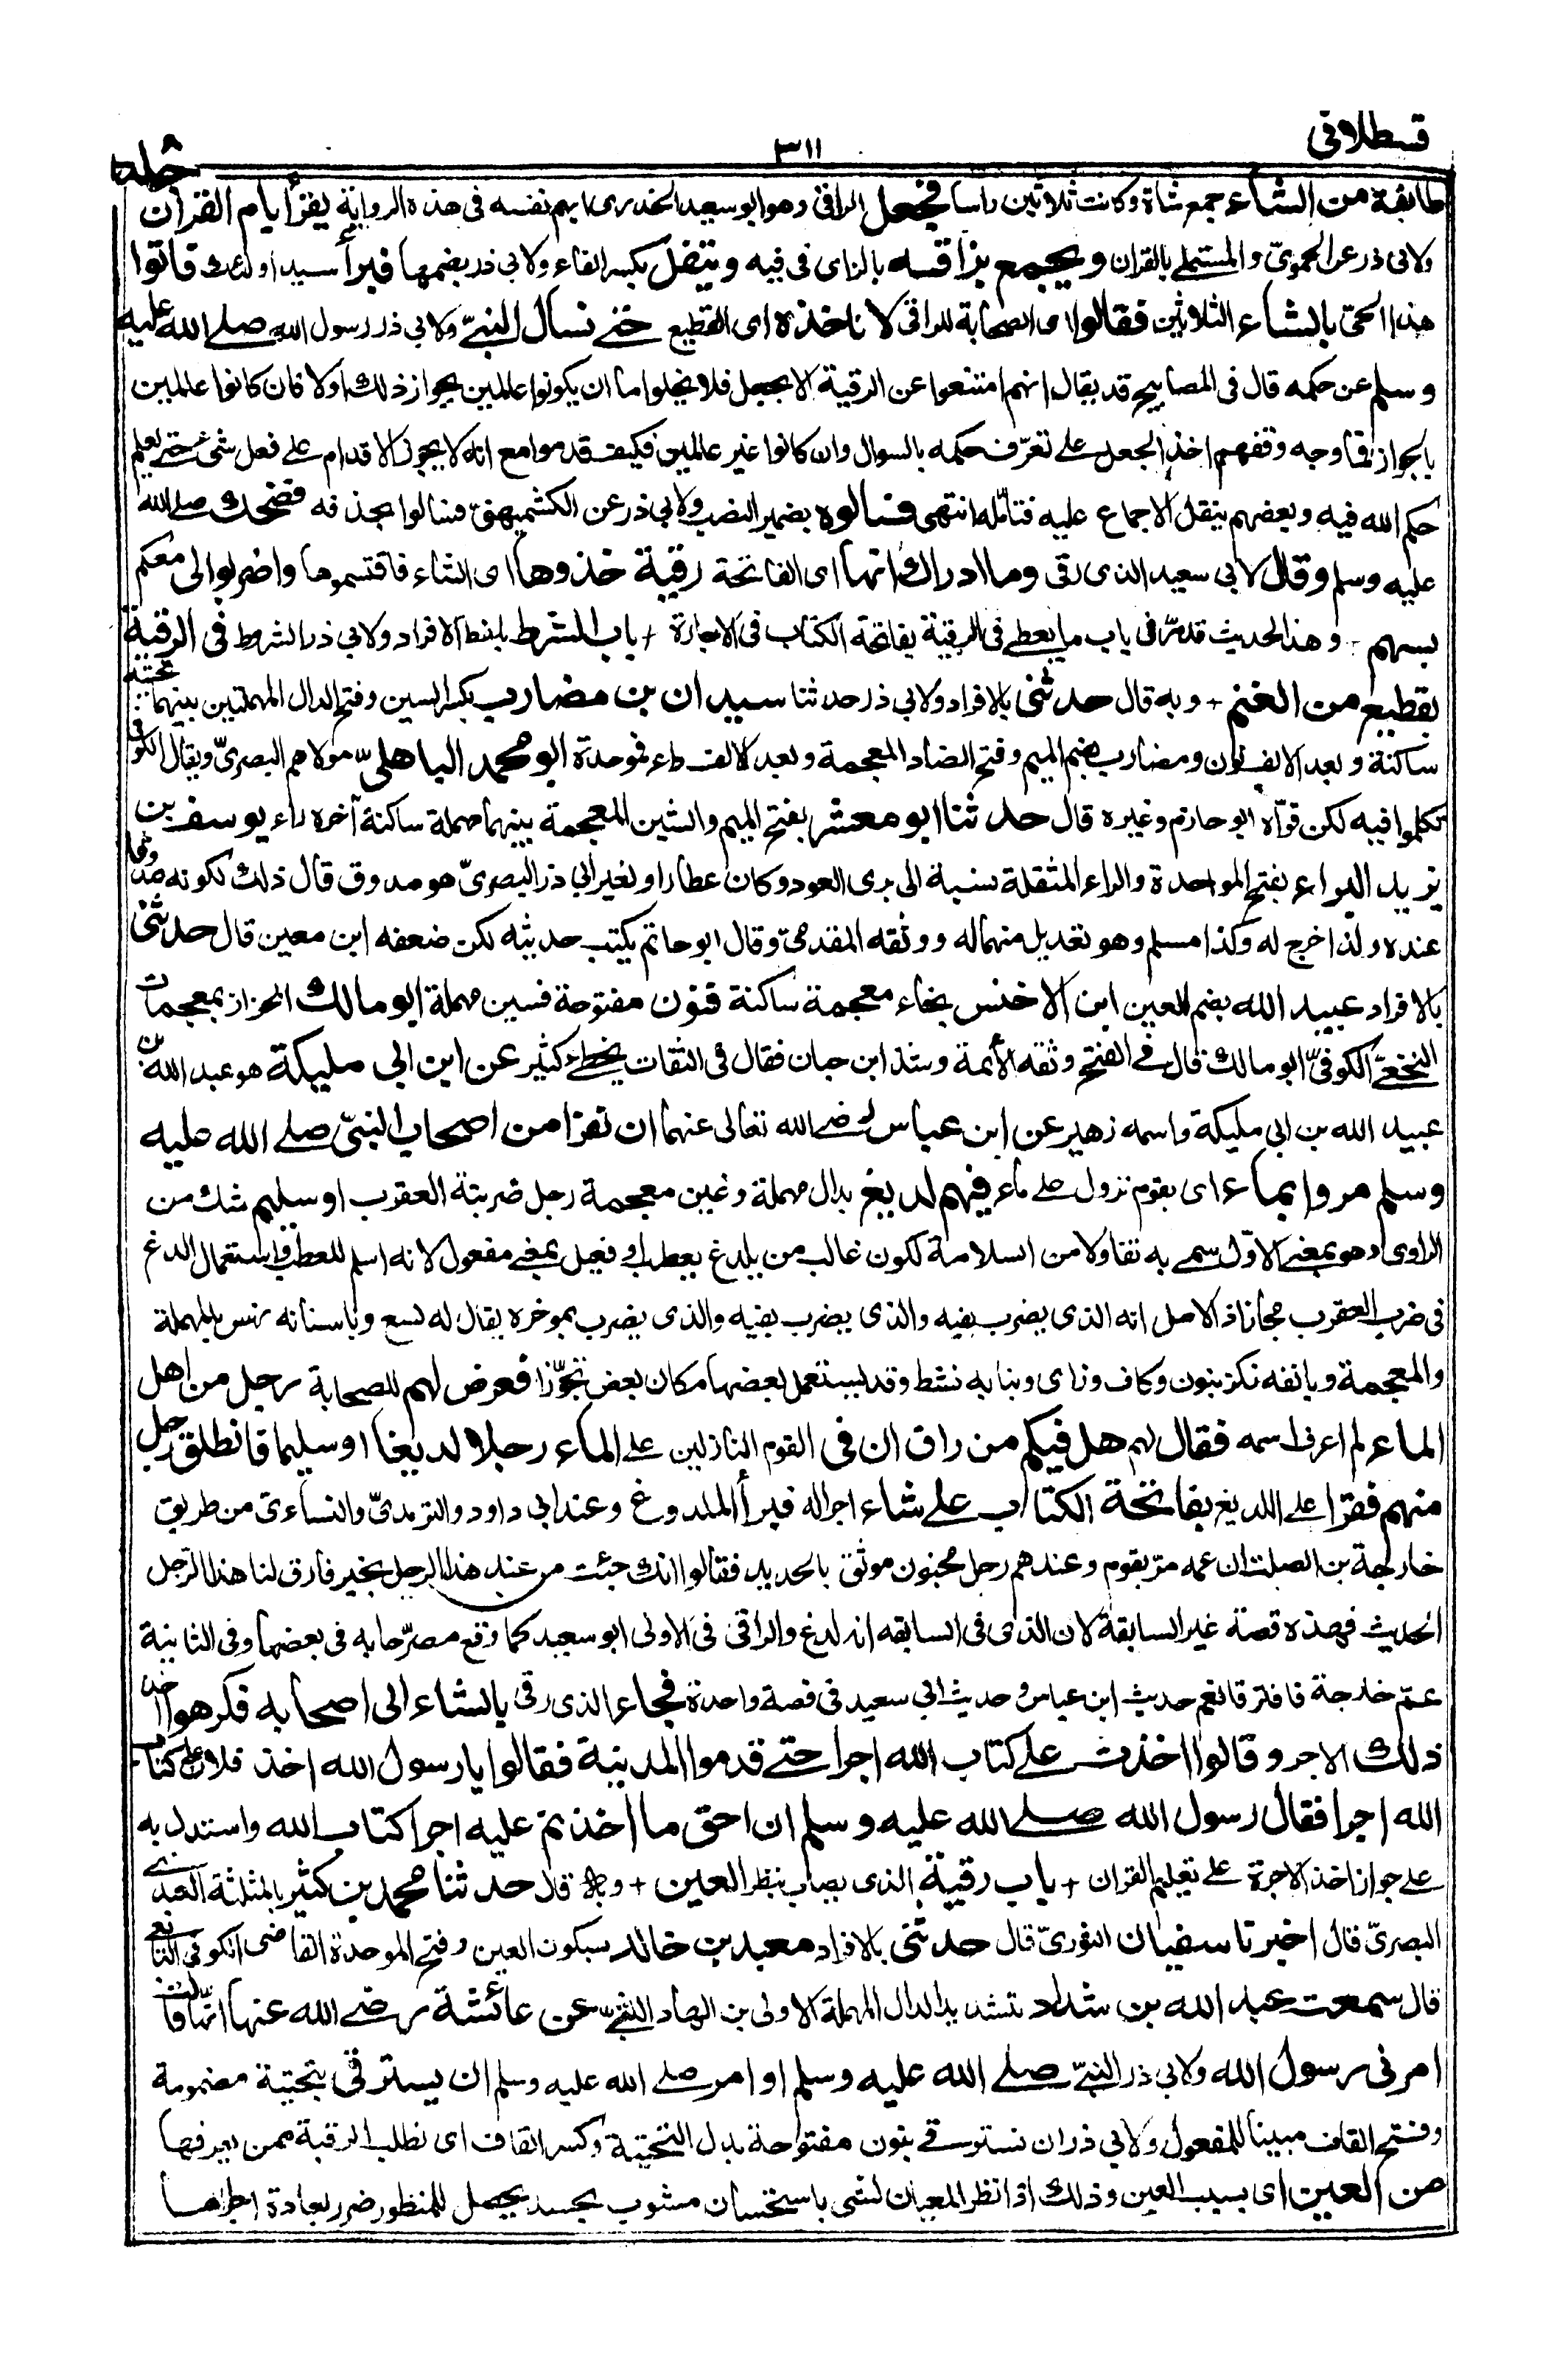 قسطلاني
٣١١
جلد ٨
طائفة من الشاء جمع شاة وكانت ثلاثين راسا فجعل الراقى وهو ابو سعيد الخدرى ابهم نفسه فى هذه الرواية يقرأ بام القرآن
ولابى ذر عن الحموىّ والمستملى بالقران ويجمع بزاقه بالزاى فى فيه ويتفل بكسر الفاء ولابى ذر بضمها فبرأ سيد اولئك فاتوا
هذا الحىّ بالشاء الثلاثين فقالوا اى الصحابة للراقى لا ناخذه اى القطيع حتى نسال النبىّ ولابى ذر رسول الله صلى الله عليه
وسلم عن حكمه قال فى المصابيح قد يقال انهم امتنعوا عن الرقية الا بجعل فلا يخلوا ما ان يكونوا عالمين بجواز ذلك اولا فان كانوا عالمين
بالجواز فما وجه وقفهم اخذ الجعل على تعرّف حكمه بالسوال وان كانوا غير عالمين فكيف قدموا مع انه لا يجوز الاقدام على فعل شئ حتى يعلم
حكم الله فيه وبعضهم ينقل الاجماع عليه فتأمّله انتهى فسالوه بضمير النصب ولابى ذر عن الكشميهنىّ فسالوا بحذفه فضحك صلى الله
عليه وسلم وقال لابى سعيد الذى رقى وما ادراك انها اى الفاتحة رقية خذوها اى الشاء فاقتسموها واضربوا لى معكم
بسهم + وهذا الحديث قد مرّ فى باب ما يعطى فى الرقية بفاتحة الكتاب فى الاجارة + باب الشرط بلفظ الافراد ولابى ذر الشروط فى الرقية
بقطيع من الغنم + وبه قال حدثنى بالافراد ولابى ذر حدثنا سيدان بن مضارب بكسر السين وفتح الدال المهملتين بينهما تحتية
ساكنة وبعد الالف نون ومضارب بضم الميم وفتح الضاد المعجمة وبعد الالف راء فموحدة ابو محمد الباهلىّ مولاهم البصرىّ ويقال الكوفى
تكلموا فيه لكن قوّاه ابو حازم وغيره قال حدثنا ابو معشر بفتح الميم والشين المعجمة بينهما مهملة ساكنة آخره راء يوسف بن
يزيد البراء بفتح الموحدة والراء المثقلة نسبة الى برى العود وكان عطارا ولغير ابى ذر البصرىّ هو صدوق قال ذلك لكونه صدوقا
عنده ولذا خرج له وكذا مسلم وهو تعديل منهما له ووثقه المقدمىّ وقال ابو حاتم يكتب حديثه لكن ضعفه ابن معين قال حدثنى
بالافراد عبيد الله بضم العين ابن الاخنس بخاء معجمة ساكنة فنون مفتوحة فسين مهملة ابو مالك الخزاز بمعجمات
النخعىّ الكوفىّ ابو مالك قال فى الفتح وثقه الأئمة وشذ ابن حبان فقال فى الثقات يخطئ كثير عن ابن ابى مليكة هو عبد الله بن
عبيد الله بن ابى مليكة واسمه زهير عن ابن عباس رضى الله تعالى عنهما ان نفرا من اصحاب النبىّ صلى الله عليه
وسلم مروا بماء اى بقوم نزول على ماء فيهم لديغ بدال مهملة وغين معجمة رجل ضربته العقرب او سليم شك من
الراوى وهو بمعنى الاوّل سمى به تفاولا من السلامة لكون غالب من يلدغ يعطب او فعيل بمعنى مفعول لانه اسلم للعطب واستعمال اللدغ
فى ضرب العقرب مجازا ذ الاصل انه الذى يضرب بفيه والذى يضرب بفيه والذى يضرب بموخره يقال له لسع وباسنانه نهس بالمهملة
والمعجمة وبانفه نكز بنون وكاف وزاى وبنابه نشط وقد يستعمل بعضها مكان بعض تجوّزا فعرض لهم للصحابة رجل من اهل
الماء لم اعرف اسمه فقال لهم هل فيكم من راق ان فى القوم النازلين على الماء رجلا لديغا او سليما فانطلق رجل
منهم فقرا على اللديغ بفاتحة الكتاب على شاء اجرا له فبرأ الملدوغ وعند ابى داود والترمذىّ والنساءى من طريق
خارجة بن الصلت ان عمه مرّ بقوم وعندهم رجل مجنون موثق بالحديد فقالوا انك جئت من عند هذا الرجل بخير فارق لنا هذا الرّجل
الحديث فهذه قصة غير السابقة لان الذى فى السابقه انه لدغ والراقى فى الاولى ابو سعيد كما وقع مصرّحا به فى بعضها وفى الثانية
عمّ خارجة فافترقا نعم حديث ابن عباس وحديث ابى سعيد فى قصة واحدة فجاء الذى رقى بالشاء الى اصحابه فكرهوا اخذ
ذلك الاجر وقالوا اخذت على كتاب الله اجرا حتى قدموا المدينة فقالوا يا رسول الله اخذ فلان على كتاب
الله اجرا فقال رسول الله صلى الله عليه وسلم ان احق ما اخذتم عليه اجرا كتاب الله واستدل به
على جواز اخذ الاجرة على تعليم القران + باب رقية الذى يصاب بنظر العين + وبه قال حدثنا محمد بن كثير بالمثلثة العبدى
البصرىّ قال اخبرنا سفيان الثورىّ قال حدثنى بالافراد معبد بن خالد بسكون العين وفتح الموحدة القاضى الكوفى التابعى
قال سمعت عبد الله بن شداد بتشديد الدال المهملة الاولى بن الهاد الليثىّ عن عائشة رضى الله عنها انّها قالت
امرنى رسول الله ولابى ذر النبىّ صلى الله عليه وسلم او امر صلى الله عليه وسلم ان يسترقى بتحتية مضمومة
وفتح القاف مبينا للمفعول ولابى ذر ان نسترقى بنون مفتوحة بدل التحتية وكسر القاف اى نطلب الرقية ممن يعرفها
من العين اى بسبب العين وذلك اذا نظر المعيان لشى باستحسان مشوب بحسد يحصل للمنظور ضرر بعادة اجراها